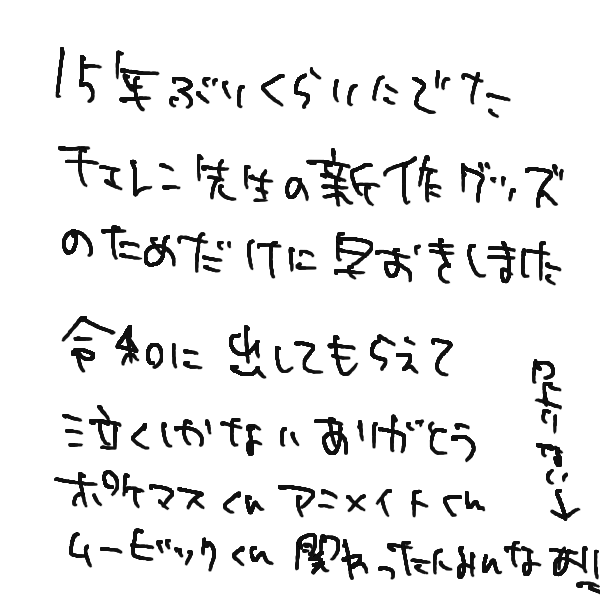 15年ぶりくらいにでた
チェレン先生の新作グッズ
のためだけに早おきしました
令和に出してもらえて
泣くしかないありがとう
ポケマスくん アニメイトくん
ムービックくん 関わったみんなあり
足りない↓